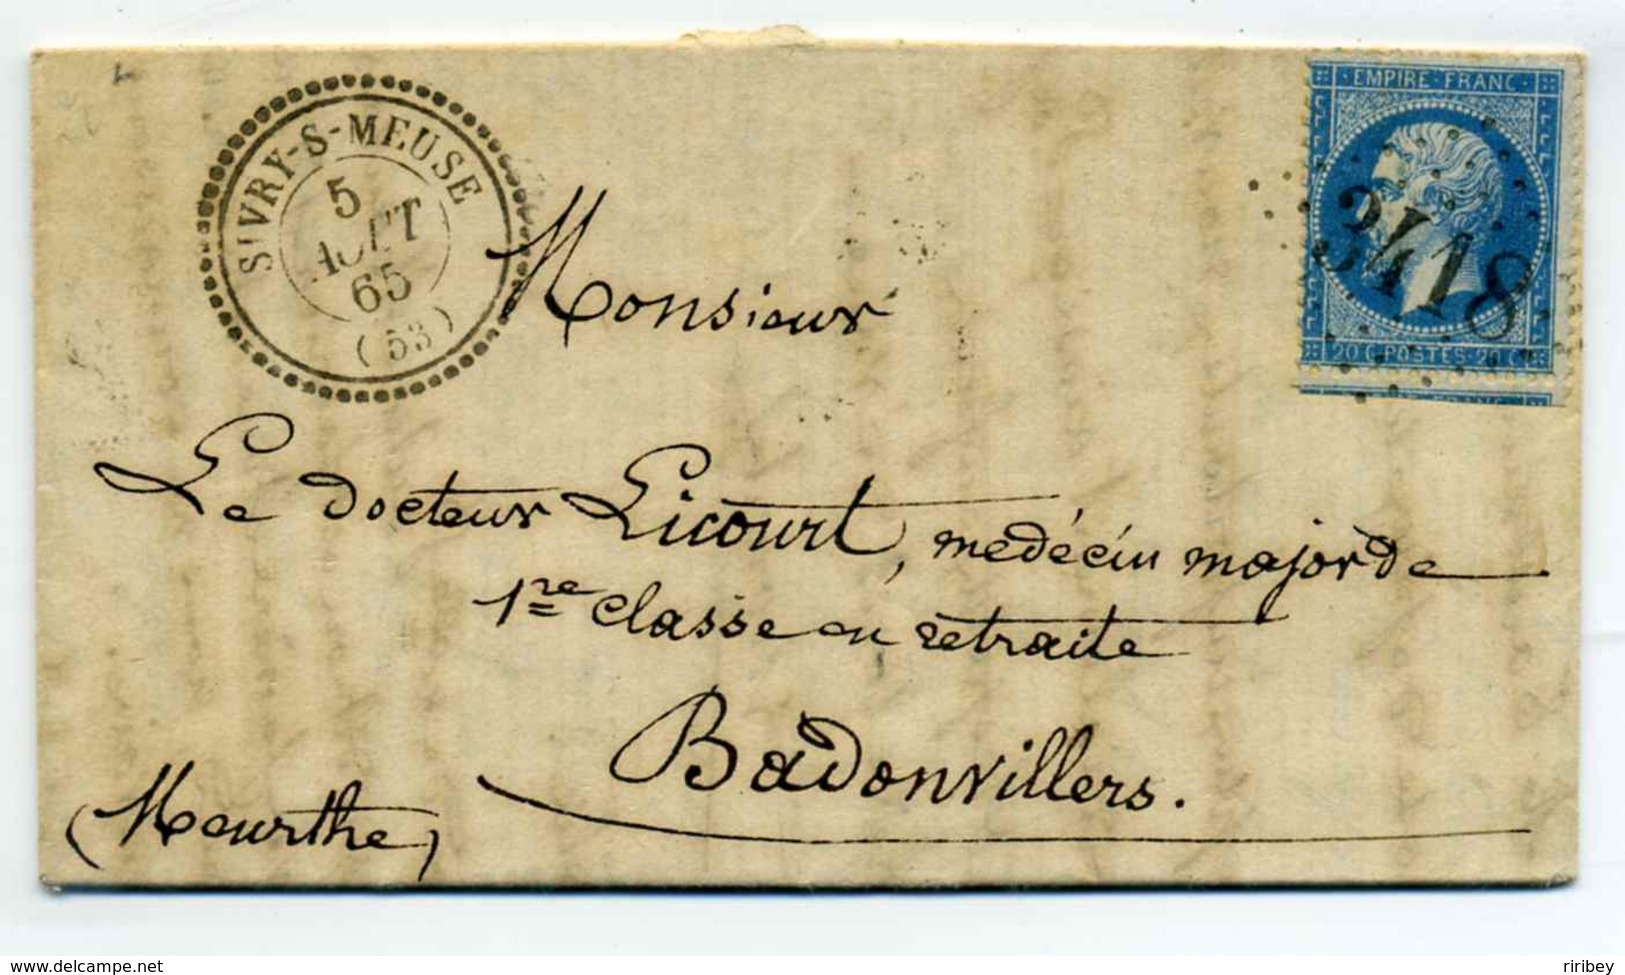 SIVRY-S-MEUSE
5
AOUT
65
(53)
EMPIRE·FRANC
3418
20 C·POSTES·20 C
Monsieur
Le docteur Licourt, médécin major de
1re classe en retraite
Badonvillers.
(Meurthe)
www.delcampe.net
riribey